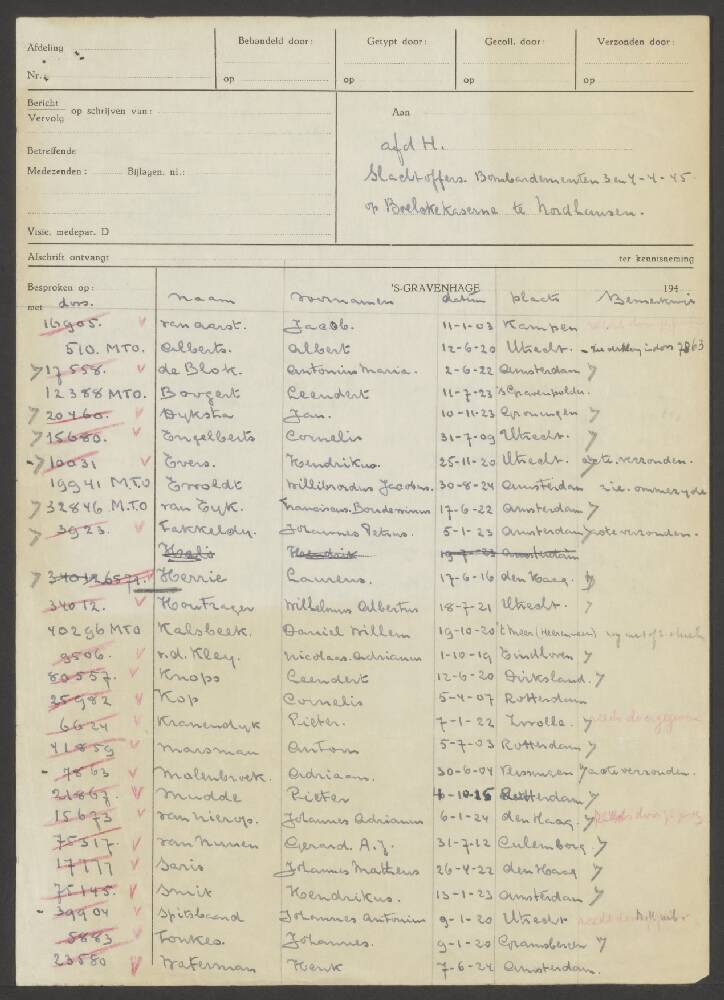 Afdeling
Behandeld door:
Getypt door:
Gecoll. door:
Verzonden door:
Nr.
op
op
op
op
Bericht
Vervolg
op schrijven van:
Betreffende
Medezenden:
Bijlagen. nl.:
Visie. medepar. D
Aan
afd H.
Slachtoffers Bombardementen 3 en 4-4-45
op Boelskekaserne te Nordhausen.
Afschrift ontvangt
ter kennisneming
Bespreken op:
met
'S-GRAVENHAGE
194
doss. naam voornamen datum plaats Bemerkung
16905. v van Aarst. Jacob. 11-1-03 Kampen
510. MTO. Alberts. Albert 12-6-20 Utrecht. 7863
17558. v de Blok. Antonius Maria. 2-6-22 Amsterdam
12388 MTO. Bovgert Leendert 11-7-23 's Gravenpolder.
20460. v Dykstra Jan. 10-11-23 Groningen
15680. v Engelberts Cornelis 31-7-09 Utrecht.
10031 v Evers. Hendrikus. 25-11-20 Utrecht. acte verzonden.
19941 MTO Ewoldt Willibrordus Jacobus. 30-8-24 Amsterdam zie ommezyde
32846 M.T.O van Eyk. Franciscus. Boudewinus 17-6-22 Amsterdam
3923. v Fakkeldy. Johannes Petrus. 5-1-23 Amsterdam acte verzonden.
Hendrik 19-7-23 Amsterdam
34012 6571. v Herrie Laurens. 17-6-16 den Haag.
34012. v Houtzager Wilhelmus Albertus 18-7-21 Utrecht.
40296 MTO Kalsbeek. Daniel Willem 19-10-20 't Meer (Heerenveen)
9506. v v.d. Kley. Nicolaas. Adrianus 1-10-19 Eindhoven
80557. v Knops Leendert 12-6-20 Dirksland.
25982 v Kop Cornelis 5-4-07 Rotterdam
6624 v Kranendyk Pieter. 7-1-22 Zwolle. reeds doorgegeven
41859 v Marsman Anton 5-7-03 Rotterdam
7863 v Molenbroek. Adriaan. 30-6-04 Terneuzen acte verzonden.
21867. v Mudde Pieter 6-10-15 Rotterdam
15673 v van Nierop. Johannes Adrianus 6-1-24 den Haag. reeds doorgegeven
75317. v van Nunen Gerard. A.J. 31-7-12 Culemborg.
17717 v Saris Johannes Mattheus 26-4-22 den Haag
75145. v Smit Hendrikus. 13-1-23 Amsterdam
39904 v Spitsbaard Johannes Antonius 9-1-20 Utrecht
5883 v Tonkes. Johannes. 9-1-20 Gramsbergen
23580 v Waterman Henk 7-6-24 Amsterdam.